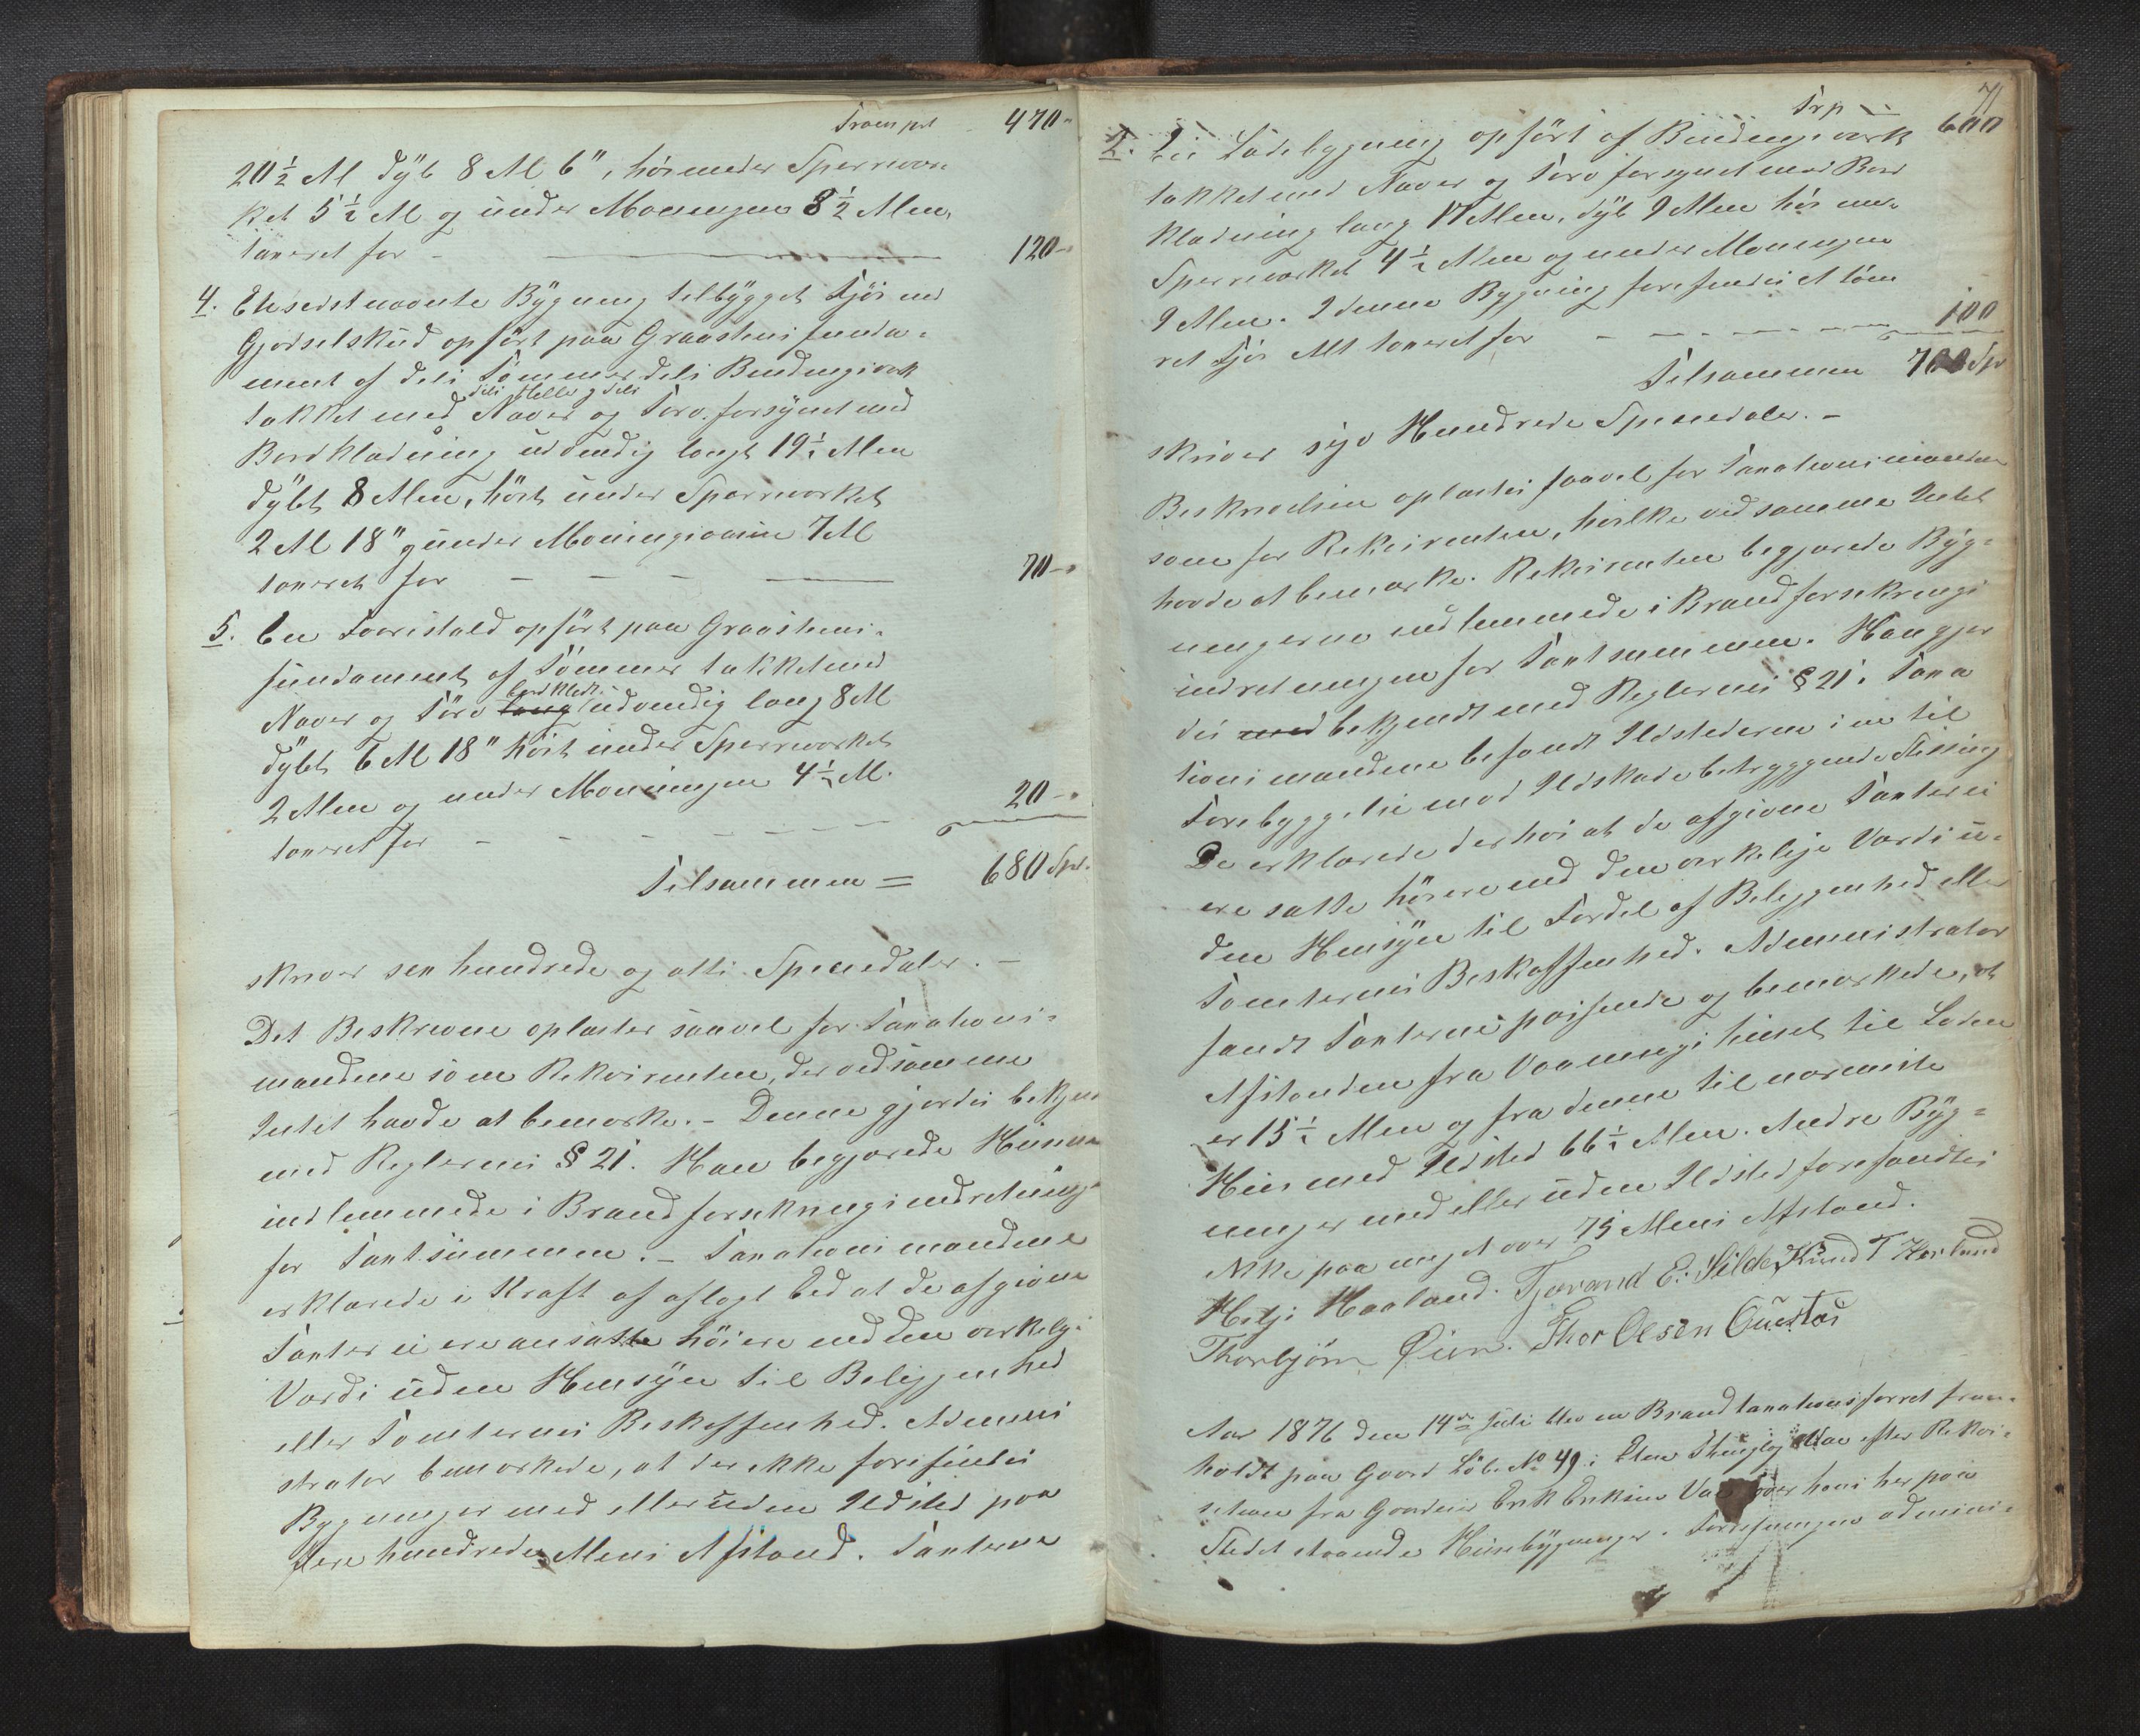 Transport 470"
20½ Al dyb 8 Al 6", høi under Sperrevær-
ket 5½ Al og under Mønningen 8½ Alen,
taxeret for - 120 -
4. Et sidstnævnte Bygning tilbygget Fjøs med
Gjødselskud opført paa Graastensfunda-
ment af dels Tømmer dels Bindingsværk
dels Heller og dels
takket med Næver og Torv, forsynet med
Bordklædning udvendig langt 19½ Alen
dybt 8 Alen, høit under Sperreværket
2 Al 18" og under Mønningen 7 Al
taxeret for - - - 70 -
5. En Faarestald opført paa Graastens-
fundament af Tømmer takket med
bordklædt
Næver og Torv lang udvendig lang 8 Al
dybt 6 Al 18" høit under Sperreværket
2 Alen og under Mønningen 4½ Al.
taxeret for - - - 20 -
Tilsammen = 680 Spd.
skriver sex hundrede og otti Speciedaler. -
Det Beskrevne oplæstes saavel for Taxations-
mændene som Rekvirenten, der ved samme
Intet havde at bemærke. - Denne gjordes bekjen
med Reglernes § 21. Han begjærede Husene
indlemmede i Brandforsikringsindretningen
for Taxtsummen. - Taxationsmændene
erklærede i Kraft af aflagt Ed at de afgivne
Taxter ei ere ansatte høiere end den virkelige
Værdi uden Hensyn til Beliggenhed
eller Tomternes Beskaffenhed. Admini
strator bemærkede, at der ikke forefindes
Bygninger med eller uden Ildsted paa
flere hundrede Alens Afstand. Taxterne
71
Trp " 600
2. En Ladebygning opført af Bindingsværk
takket med Næver og Torv forsynet med Bord
klædning lang 17 Alen, dyb 9 Alen høi under
Sperreværket 4½ Alen og under Mønningen
9 Alen. I denne Bygning forefindes et tøm
ret Fjøs Alt taxeret for - - - 100
Tilsammen 700 Spd
skriver syv Hundrede Speciedaler. -
Beskrivelsen oplæstes saavel for Taxationsmændene
som for Rekvirenten, hvilke ved samme Intet
havde at bemærke. Rekvirenten begjærede Byg-
ningerne indlemmede i Brandforsikrings
indretningen for Taxtsummen. Han gjor
des med bekjendt med Reglernes § 21. Taxa
tionsmændene befandt Ildstederne i en til
Forebyggelse mod Ildskade betryggende Stilling
De erklærede derhos at de afgivne Taxter ei
ere satte høiere end den virkelige Værdi u-
den Hensyn til Fordel af Beliggenhed eller
Tomternes Beskaffenhed. Administrator
fandt Taxterne passende og bemærkede, at
Afstanden fra Vaaningshuset til Laden
er 15½ Alen og fra denne til nærmeste
Huus med Ildsted 66½ Alen. Andre Byg-
ninger med eller uden Ildsted forefandtes
ikke paa noget over 75 Alens Afstand.
Helje Haaland. Tjerand E. Silde, Knud T
Thorbjørn Øien. Thor Olsen
Aar 1876 den 14de Juli blev en Brandtaxationsforret frem-
holdt paa Gaard Løb. No 49 i efter Rekvi-
sition fra Gaardens Erik Eriksen over hans her paa
Stedet staaende Huusbygninger. Forretningen admini-